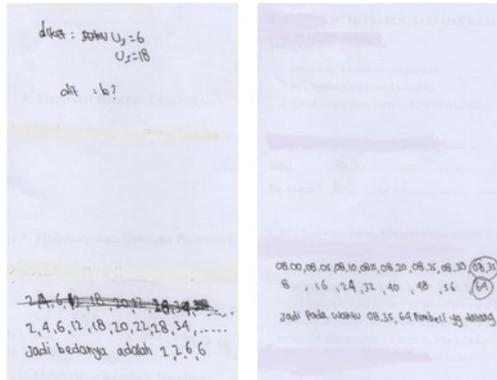 diket : U3=6
U5=18
dit : b?
2,4,6,12,18,20,22,28,34,.....
Jadi bedanya adalah 2 2 6 6
08.00, 08.05, 08.10, 08.15, 08.20, 08.25, 08.30, 08.35
8, 16, 24, 32, 40, 48, 56, 64
Jadi Pada waktu 08.35, 64 Pembeli yg datang